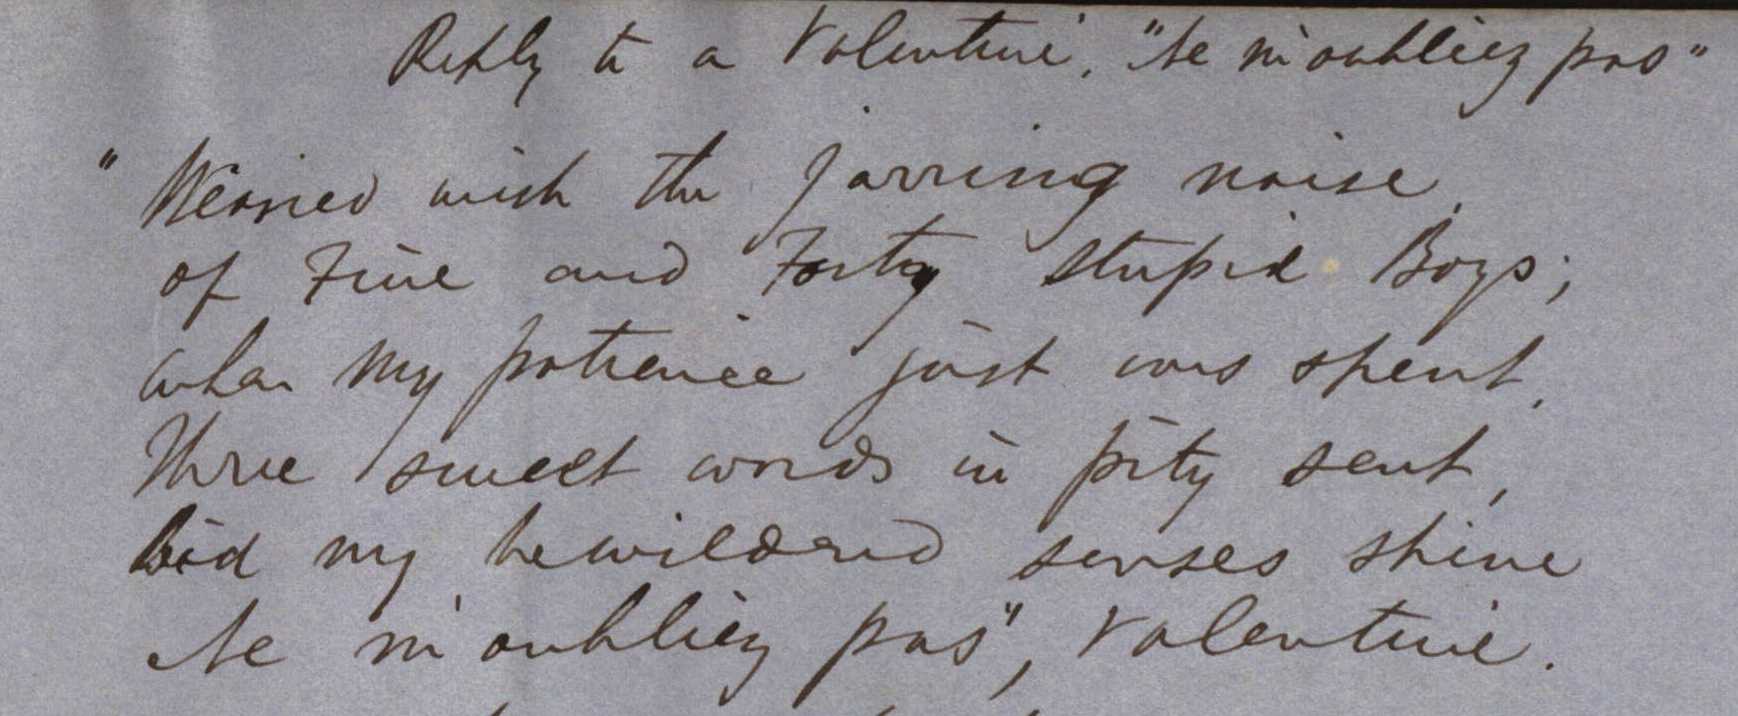 Reply to a Valentine. "Ne m'oubliez pas"
"Wearied with the jarring noise,
of Five and Forty stupid Boys;
when my patience just was spent,
Three sweet words in pity sent,
Bid my bewildered senses shine
Ne m'oubliez pas", Valentine.